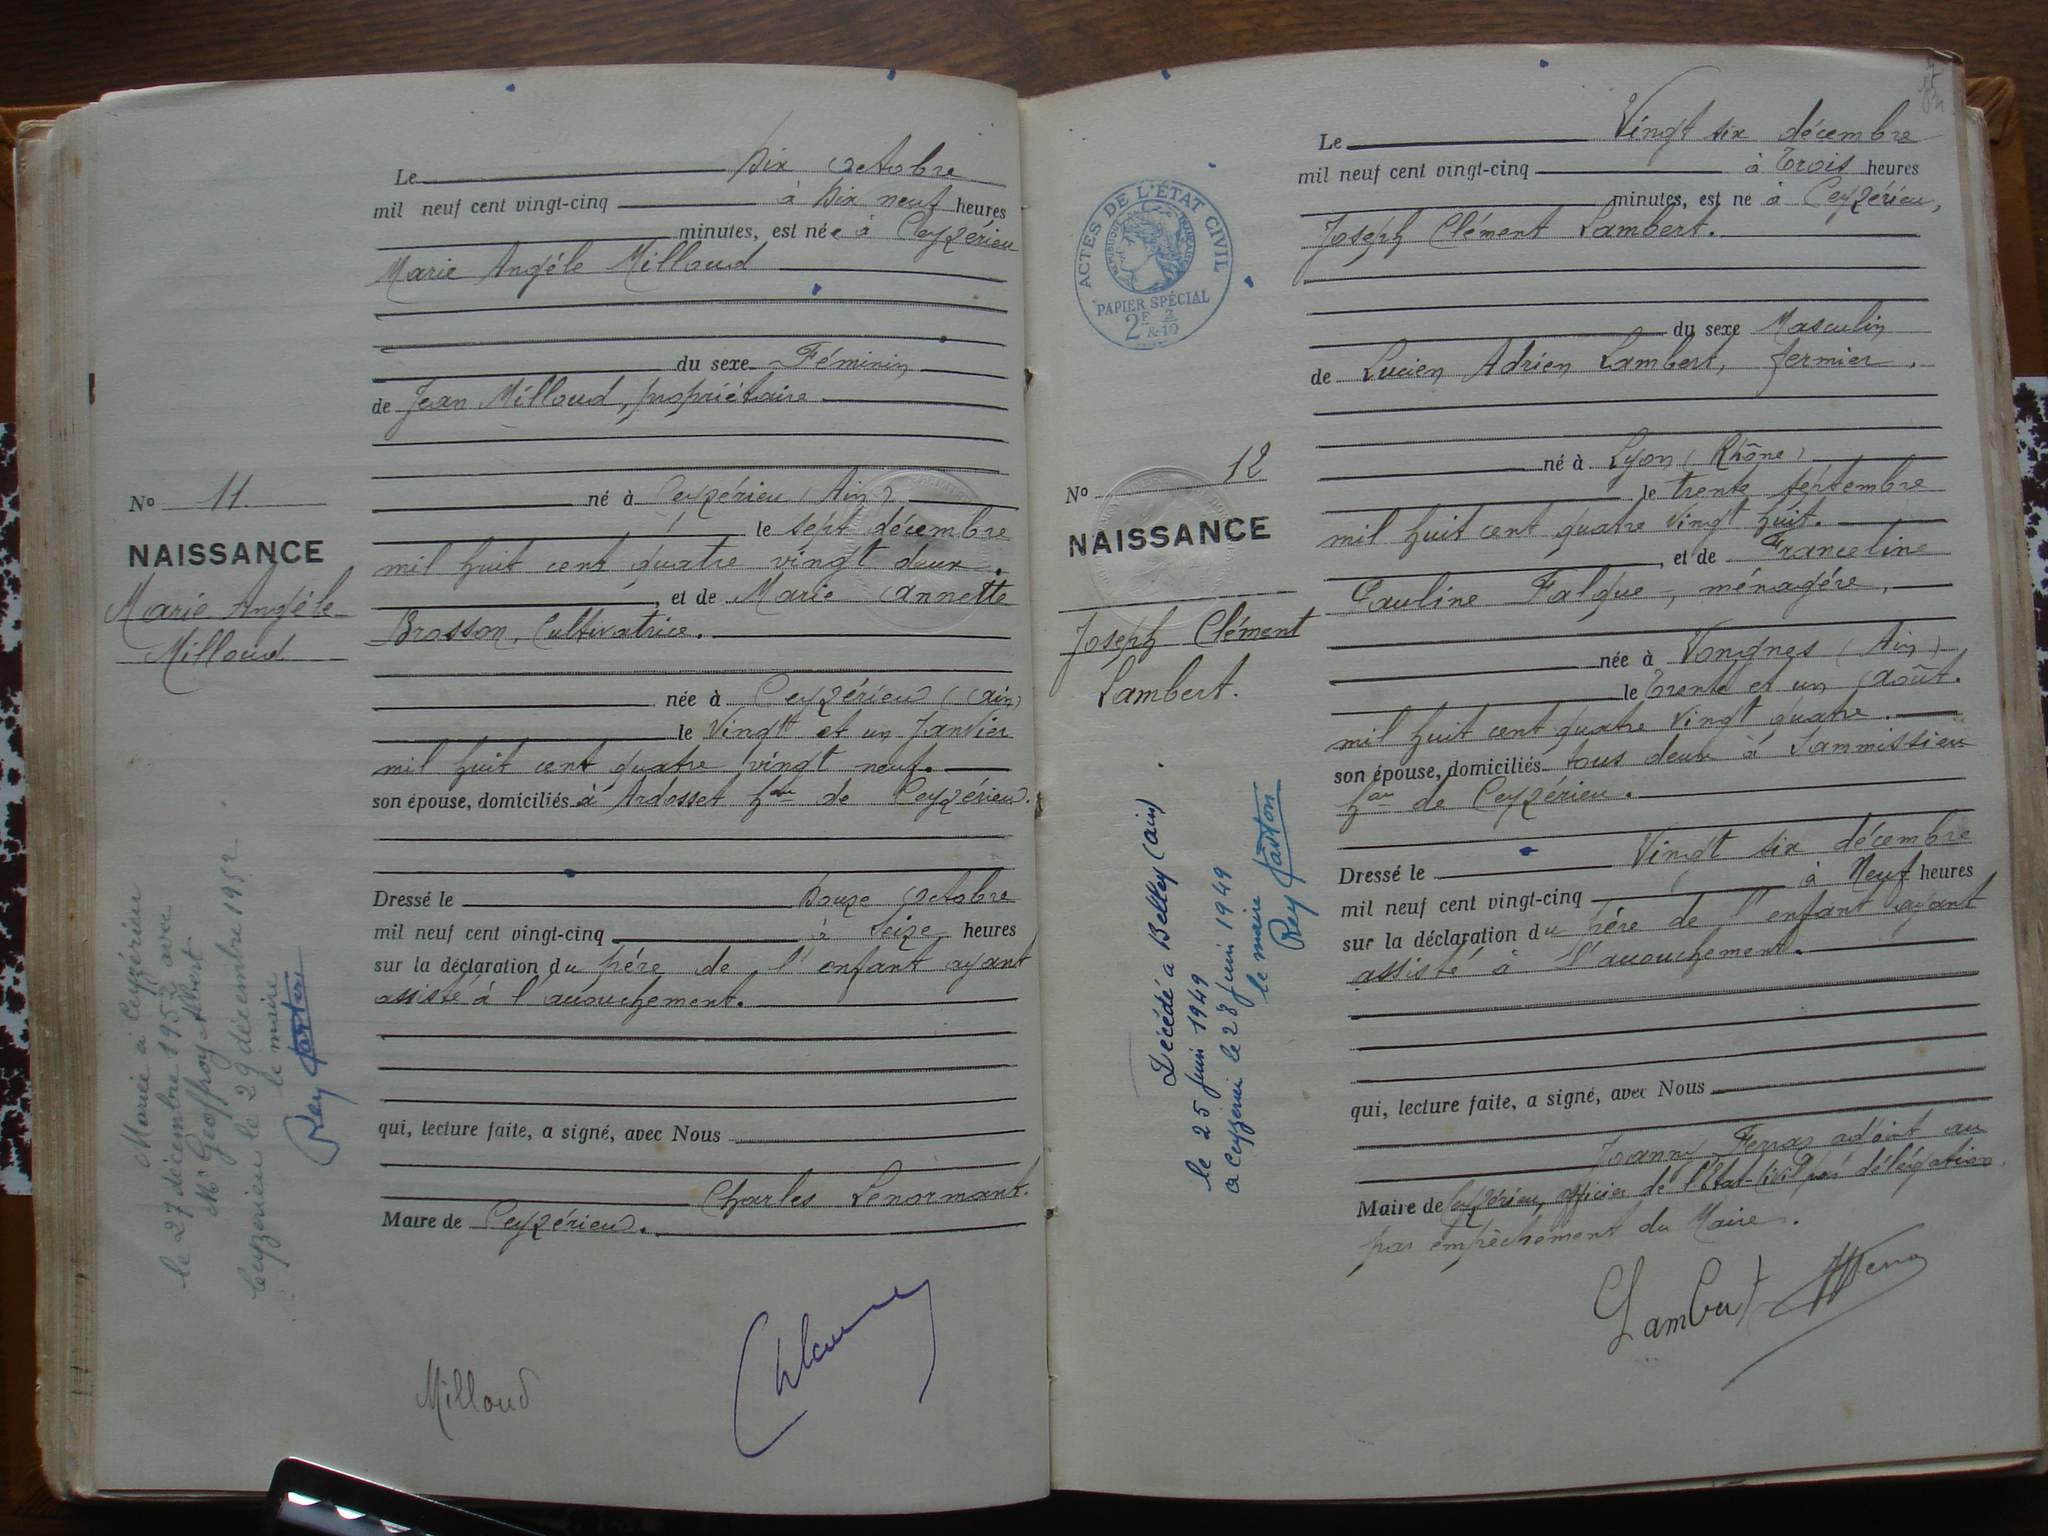 Le Dix octobre
mil neuf cent vingt-cinq à Dix neuf heures
minutes, est née à Ceyzérieu
Marie Angéle Milloud
du sexe Féminin
de Jean Milloud, propriétaire
né à Ceyzérieu (Ain)
le sept décembre
mil huit cent quatre vingt deux.
, et de Marie Annette
Brosson, Cultivatrice.
née à Ceyzérieu (Ain)
le Vingt et un Janvier
mil huit cent quatre vingt neuf.
son épouse, domiciliés à Ardosset hau de Ceyzérieu.
Dressé le Douze octobre
mil neuf cent vingt-cinq à Seize heures
sur la déclaration du père de l'enfant ayant
assisté à l'accouchement.
qui, lecture faite, a signé, avec Nous
Charles Lenormant.
Maire de Ceyzérieu.
Milloud
No 11.
NAISSANCE
Marie Angéle
Milloud
Mariée à Ceyzérieu
le 27 décembre 1952 avec
Mr Geoffroy Albert
Ceyzerieu le 29 décembre 1952
le maire
Rey Gaston
ACTES DE L'ÉTAT CIVIL
RÉPUBLIQUE FRANÇAISE
PAPIER SPÉCIAL
2F 2/10
No 12
NAISSANCE
Joseph Clément
Lambert.
Décédé a Belley (ain)
le 25 juin 1949
a Ceyzerieu le 28 juin 1949
le maire
Rey Gaston
Le Vingt six décembre
mil neuf cent vingt-cinq à Trois heures
minutes, est né à Ceyzérieu,
Joseph Clément Lambert.
du sexe Masculin
de Lucien Adrien Lambert, fermier,
né à Lyon (Rhône)
le trente septembre
mil huit cent quatre vingt huit.
, et de Franceline
Pauline Falque, ménagére,
née à Vongnes (Ain)
le Trente et un Août.
mil huit cent quatre vingt quatre.
son épouse, domiciliés tous deux à Sammissieu
hau de Ceyzérieu.
Dressé le Vingt six décembre
mil neuf cent vingt-cinq à Neuf heures
sur la déclaration du père de l'enfant ayant
assisté à l'accouchement.
qui, lecture faite, a signé, avec Nous
Joanny Ferras adjoint au
Maire de Ceyzérieu, officier de l'Etat-Civil par délégation
par empêchement du Maire.
Lambert